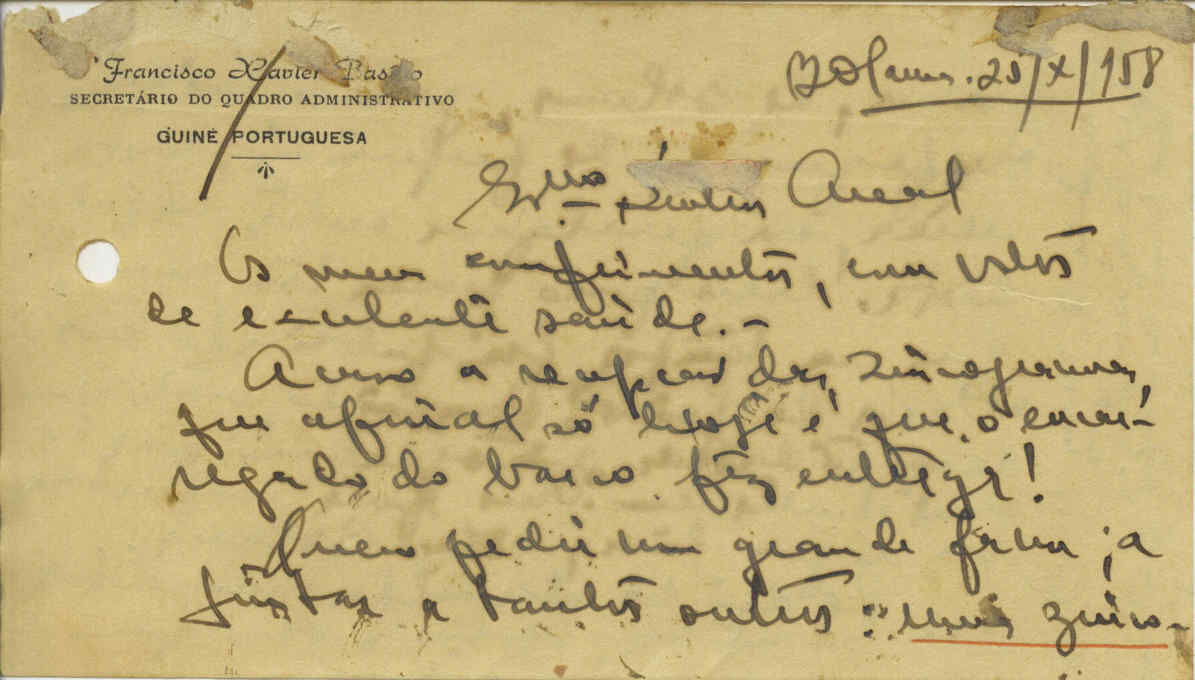 Francisco Xavier Basílio
SECRETÁRIO DO QUADRO ADMINISTRATIVO
GUINÉ PORTUGUESA
Bolama. 25/X/958
Exmo. Areal
Os meus cumprimentos, com votos
de excelente saúde. –
Acuso a recepção das zincogravuras,
que afinal só hoje é que o encar-
regado do barco fez entrega!
Quero pedir um grande favor, a
juntar a tantos outros: mais zinco-